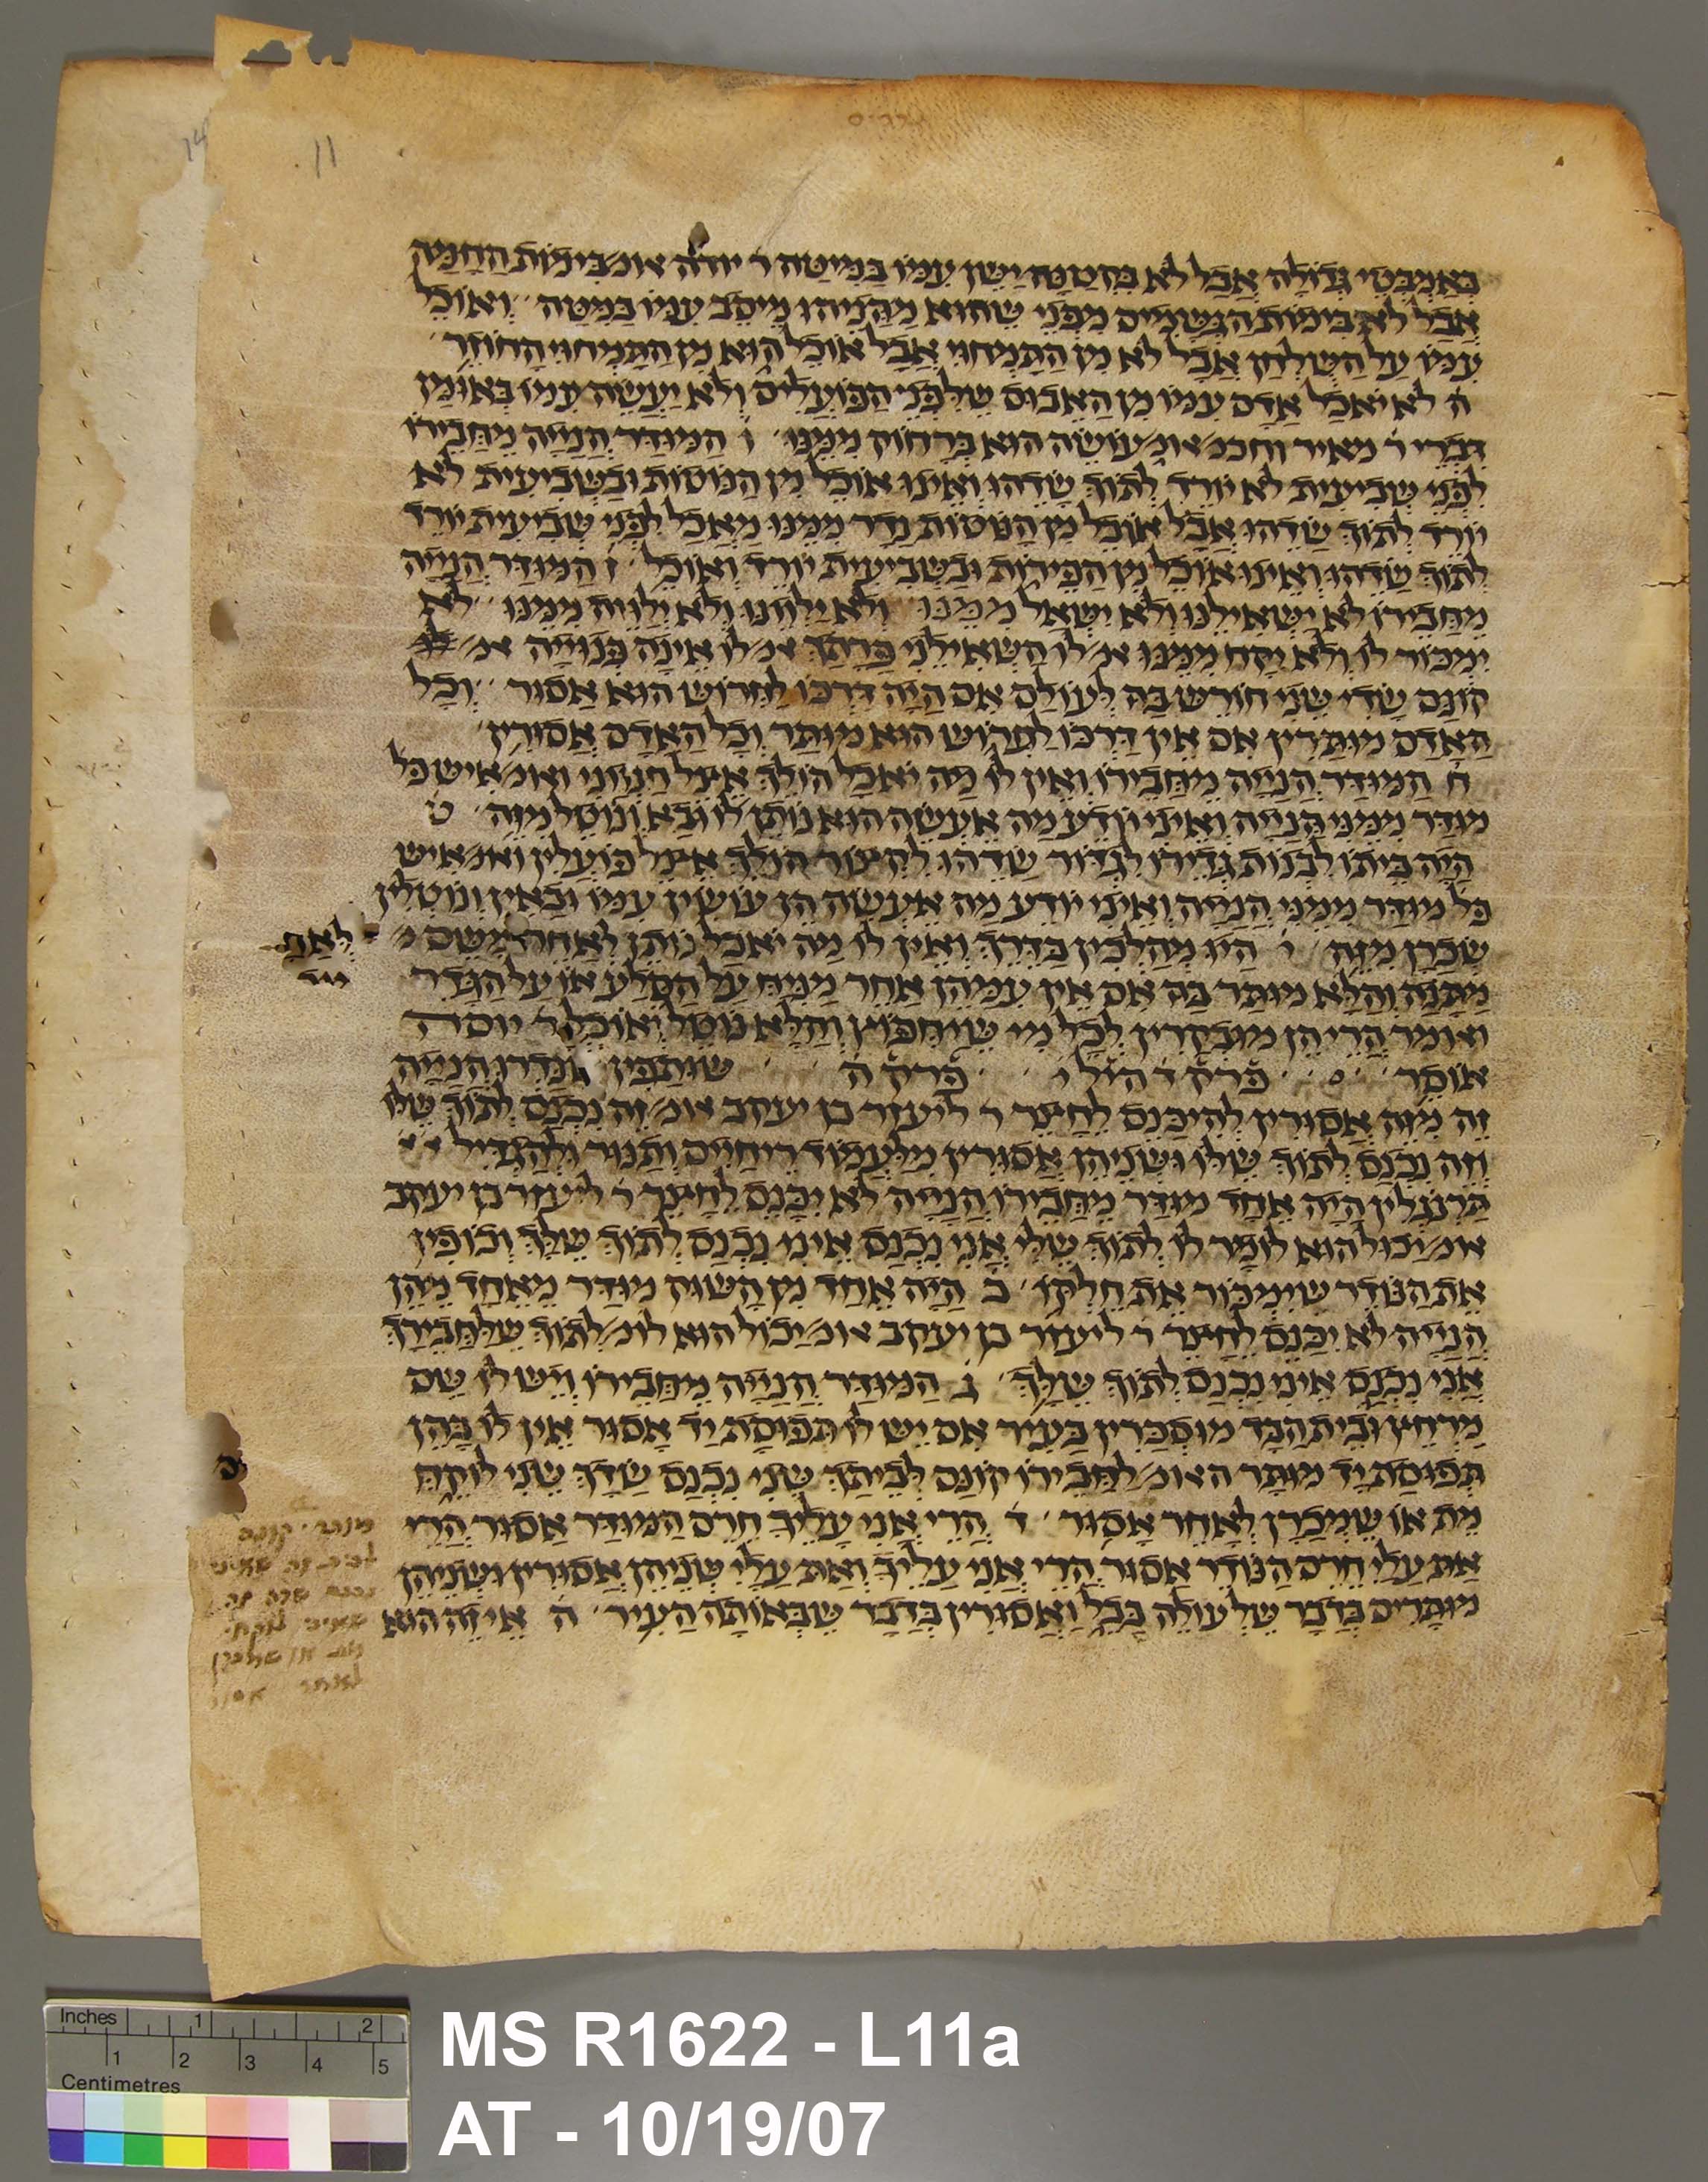 נדרים
11
באמבטי גדולה אבל לא בקטנה ישן עמו במיטה ר׳ יודה אומ׳ בימות החמה
אבל לא בימות הגשמים מפני שהוא מהניהו מיסב עמו במטה ואוכל
עמו על השלחן אבל לא מן התמחוי אבל אוכל הוא מן התמחוי החוזר
ה לא יאכל אדם עמו מן האבוס שלפני הפועלים ולא יעשה עמו באומן
דברי ר׳ מאיר וחכמ׳ אומ׳ עושה הוא ברחוק ממנו ו המודר הנייה מחבירו
לפני שביעית לא יורד לתוך שדהו ואינו אוכל מן הנוטות ובשביעית לא
יורד לתוך שדהו אבל אוכל מן הנוטות נדר ממנו מאכל לפני שביעית יורד
לתוך שדהו ואינו אוכל מן הפירות ובשביעית יורד ואוכל ז המודר הנייה
מחבירו לא ישאילנו ולא ישאל ממנו ולא ילונו ולא ילווה ממנו לא
ימכור לו ולא יקח ממנו אמ׳ לו השאילני פרתך אמ׳ לו אינה פנוייה אמ׳
קונם שדי שני חורש בה לעולם אם היה דרכו לחרוש הוא אסור וכל
האדם מותרין אם אין דרכו לחרוש הוא מותר וכל האדם אסורין
ח המודר הנייה מחבירו ואין לו מה יאכל הולך אצל חנווני ואומ׳ איש פל׳
מודר ממני הנייה ואיני יודע מה אעשה הוא נותן לו ובא ונוטל מזה ט
היה ביתו לבנות גדירו לגדור שדהו לקצור הולך אצל פועלין ואומ׳ איש
פל׳ מודר ממני הנייה ואיני יודע מה אעשה הן עושין עמו ובאין ונוטלין
שכרן מזה י היו מהלכין בדרך ואין לו מה יאכל נותן לאחר לשם
מתנה והלה מותר בה אם אין עמהן אחר מניח על הסלע או על הגדר
ואומר הרי הן מובקרין לכל מי שיחפוץ והלה נוטל ואוכל ר׳ יוסה
אוסר פרק ד הל׳ י פרק ה שותפין שנדרו הנייה
זה מזה אסורין להיכנס לחצר ר׳ ליעזר בן יעקב אומ׳ זה נכנס לתוך שלו
וזה נכנס לתוך שלו ושניהן אסורין מלעמוד ריחים ותנור ולהגדיל
תרנגלין היה אחד מודר מחבירו הנייה לא יכנס לחצר ר׳ ליעזר בן יעקב
אומ׳ יכול הוא לומר לו לתוך שלי אני נכנס איני נכנס לתוך שלך וכופין
את הנודר שימכור את חלקו ב היה אחד מן השוק מודר מאחד מהן
הנייה לא יכנס לחצר ר׳ ליעזר בן יעקב אומ׳ יכול הוא לומ׳ לתוך שלחבירך
אני נכנס איני נכנס לתוך שלך ג המודר הנייה מחבירו ויש לו שם
מרחץ ובית הבד מוסכרין בעיר אם יש לו תפוסת יד אסור אין לו בהן
תפוסת יד מותר האומ׳ לחבירו קונם לביתך שני נכנס שדך שני לוקח
מת או שמכרן לאחר אסור ד הרי אני עליך חרם המודר אסור הרי
את עלי חרם הנודר אסור הרי אני עליך ואת עלי שניהן אסורין ושניהן
מותרים בדבר של עולה בבל ואסורין בדבר שבאותה העיר ה איזה הוא